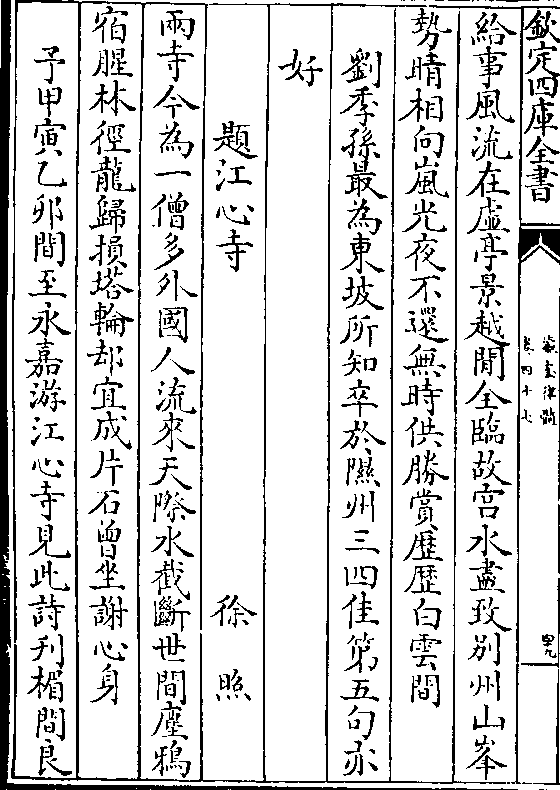 欽定四庫全書
瀛奎律髓
卷四十七
四九
給事風流在虛亭景越閒全臨故宫水盡致别州山峯
勢晴相向嵐光夜不還無時供勝賞歴歴白雲間
劉季孫最為東坡所知卒於隰州三四佳第五句亦
好
題江心寺 徐照
兩寺今為一僧多外國人流來天際水截斷世間塵鴉
宿腥林徑龍歸損塔輪却宜成片石曽坐謝心身
予甲寅乙卯間至永嘉游江心寺見此詩刋楣間良